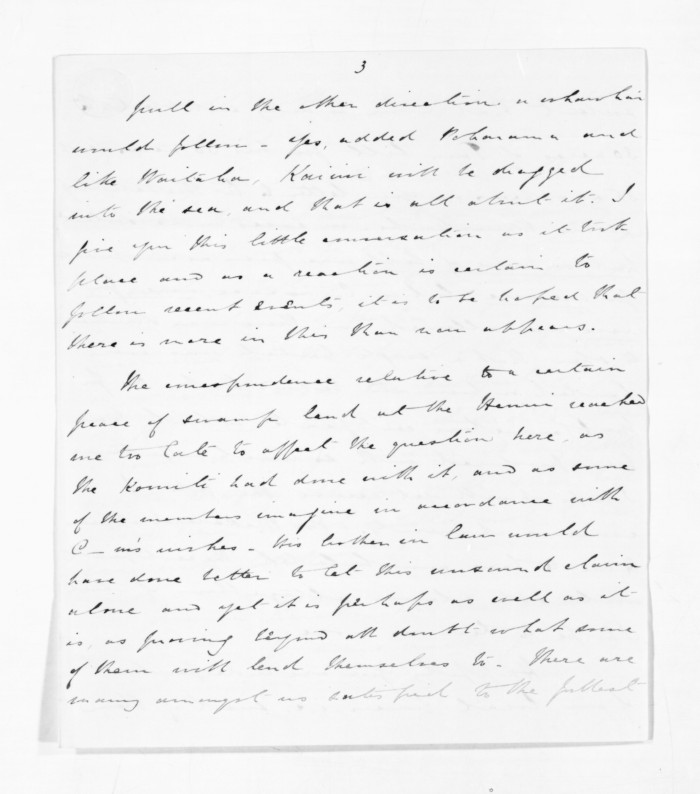 3
pull in the other direction a whawhai
would follow - yes, added Poharama and
like Waitaha, Kaiiwi will be dragged
into the sea, and that is all about it. I
give you this little conversation as it took
place and as a reaction is certain to
follow recent events, it is to be hoped that
there is more in this than now appears.
The correspondence relative to a certain
peace of swamp land at the Henui reached
me too late to affect the question here, as
the Komiti had done with it, and as some
of the members imagine in accordance with
C-m's wishes - His brother in law would
have done better to let this unsound claim
alone and yet it is perhaps as well as it
is, as proving beyond all doubt what some
of them will lend themselves to - There are
many amongst us satisfied to the fullest